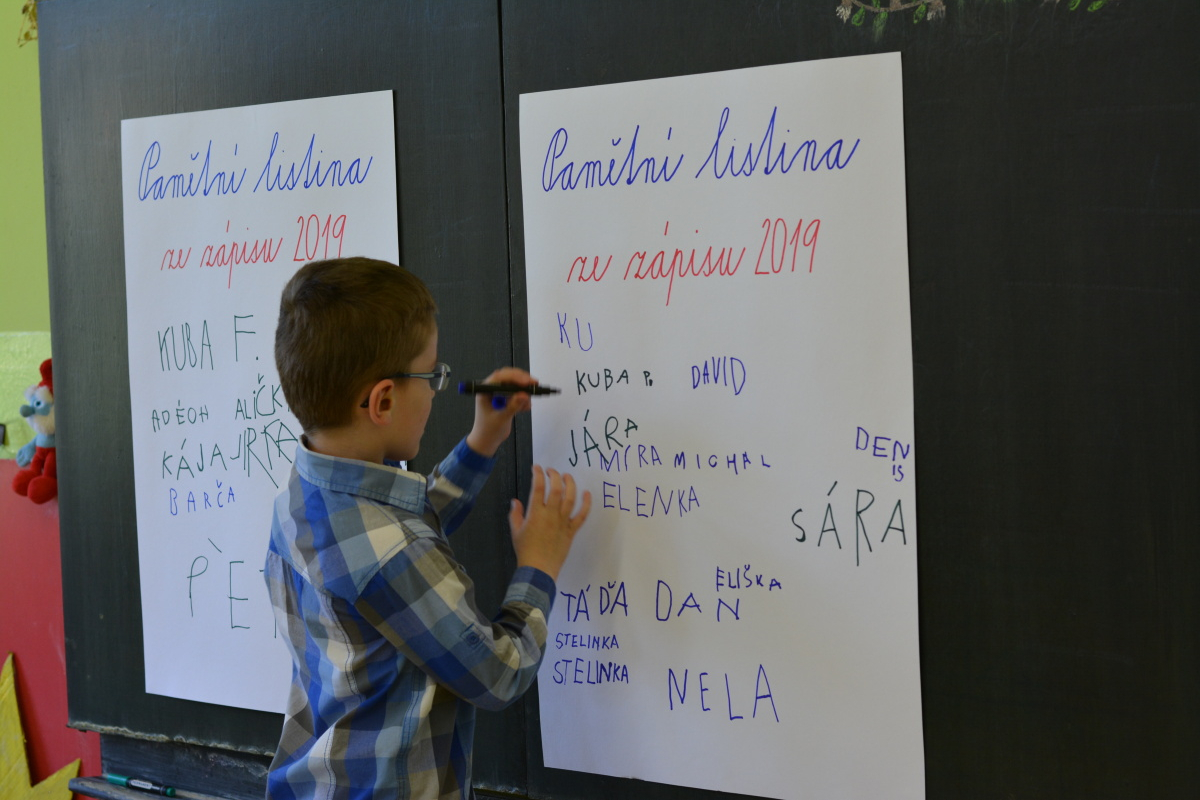 Pamětní listina
ze zápisu 2019
KUBA F.
ADÉOH ALIČK
KÁJA JIRKA
BARČA
Pamětní listina
ze zápisu 2019
KU
KUBA P. DAVID
JÁRA
MÍRA MICHAL
DEN
IS
ELENKA
SÁRA
ELIŠKA
TÁĎA DAN
STELINKA
STELINKA
NELA